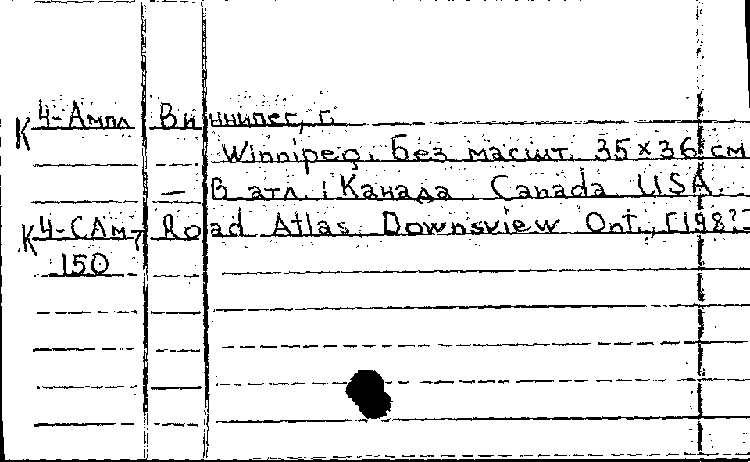 К 4-Ампл Виннипег, г.
Winnipeg. Без масшт. 35×36 см
— В атл.: Канада. Canada USA.
К 4-САм7 Road Atlas. Downsview Ont., [198?-
150